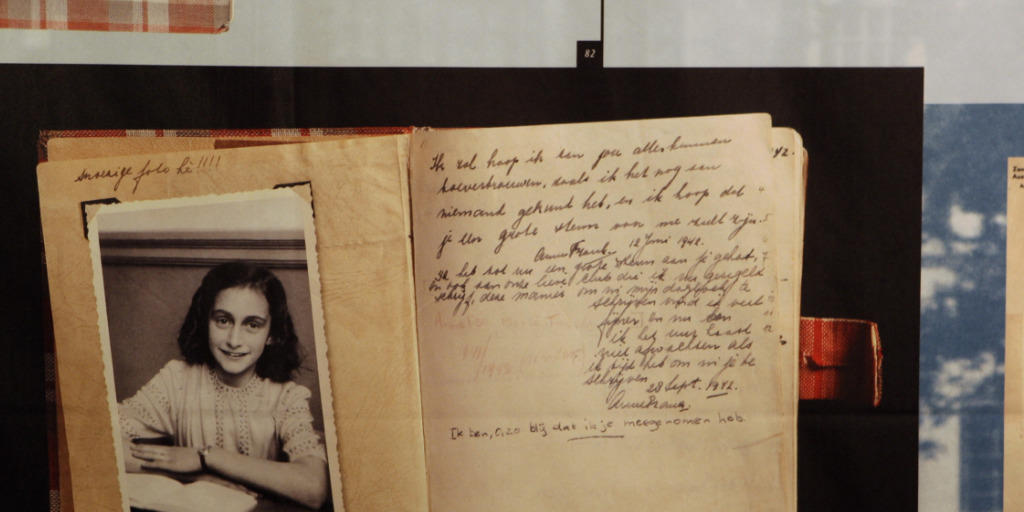 82
snoezige foto hè!!!!
Ik zal hoop ik aan jou alles kunnen
toevertrouwen, zoals ik het nog aan
niemand gekund heb, en ik hoop dat
je een grote steun voor me zult zijn.
Anne Frank. 12 Juni 1942.
Ik heb tot nu een grote steun aan je gehad,
en ook aan onze lieve club die ik nu geregeld
schrijf, deze manier om in mijn dagboek te
schrijven vind ik veel
fijner en nu kan
ik het uur haast
niet afwachten als
ik tijd heb om in je te
schrijven.
28 Sept. 1942.
Anne Frank.
Ik ben, O, zo blij dat ik je meegenomen heb.
42.